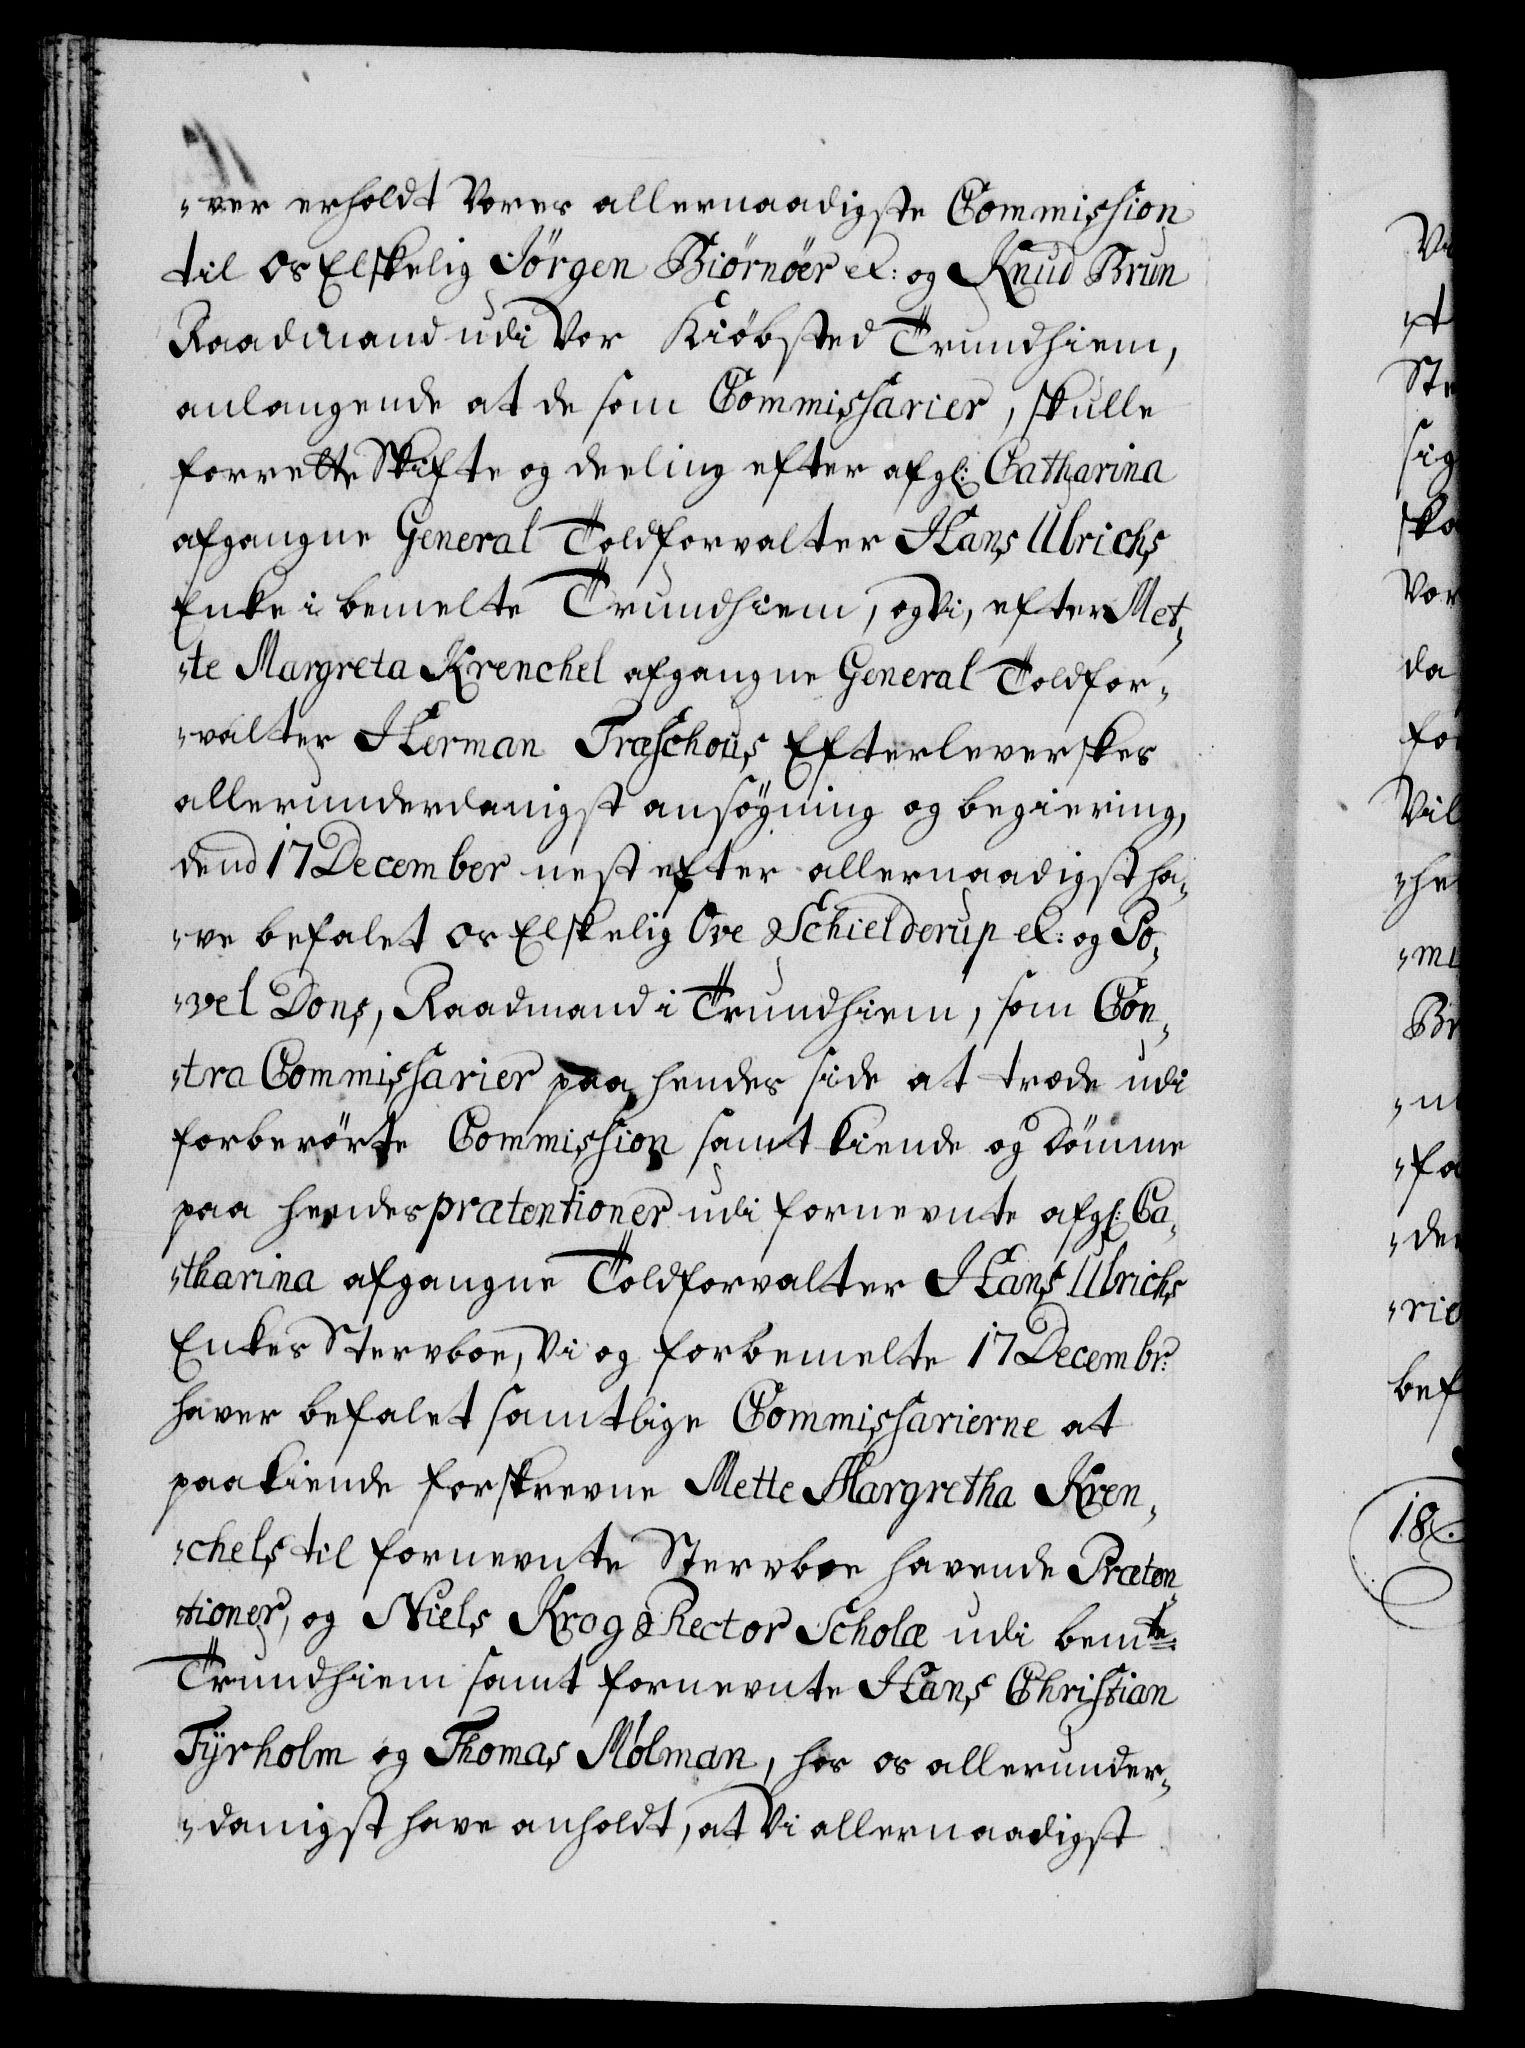 „ver erholdt Vores allernaadigste Commission
til Os Elskelig Jörgen Biörnöer el: og Knud Brun
Raadmand udi Vor Kiöbsted Trundhiem,
anlangende at de som Commissarier, skulle
forrette Skifte og deeling efter afgl: Catharina
afgangne General Toldforvalter Hans Ulrichs
Enke i bemelte Trundhiem, og Vi, efter Met„
„te Margreta Krenchel afgangne General Toldfor„
„valter Herman Træschous Efterleverskes
allerunderdanigst ansögning og begiering,
dend 17 December nest efter allernaadigst ha„
„ve befalet Os Elskelig Ove Schielderup el: og Po„
„vel Dons, Raadmand i Trundhiem, som Con„
„tra Commissarier paa hendes side at træde udi
forberörte Commission samt kiende og dömme
paa hendes prætentioner udi fornevnte afgl: Ca„
„tharina afgangne Toldforvalter Hans Ulrichs
Enkes Stervboe, Vi og forbemelte 17 Decembr:
haver befalet samtlige Commissarierne at
paakiende forskrevne Mette Margretha Kren„
„chels til fornevnte Stervboe havende Præten„
„tioner, og Niels Krog Rector Scholæ udi bemte
Trundhiem samt fornevnte Hans Christian
Tÿrholm og Thomas Molman, hos os allerunder„
„danigst have anholdt, at Vi allernaadigst